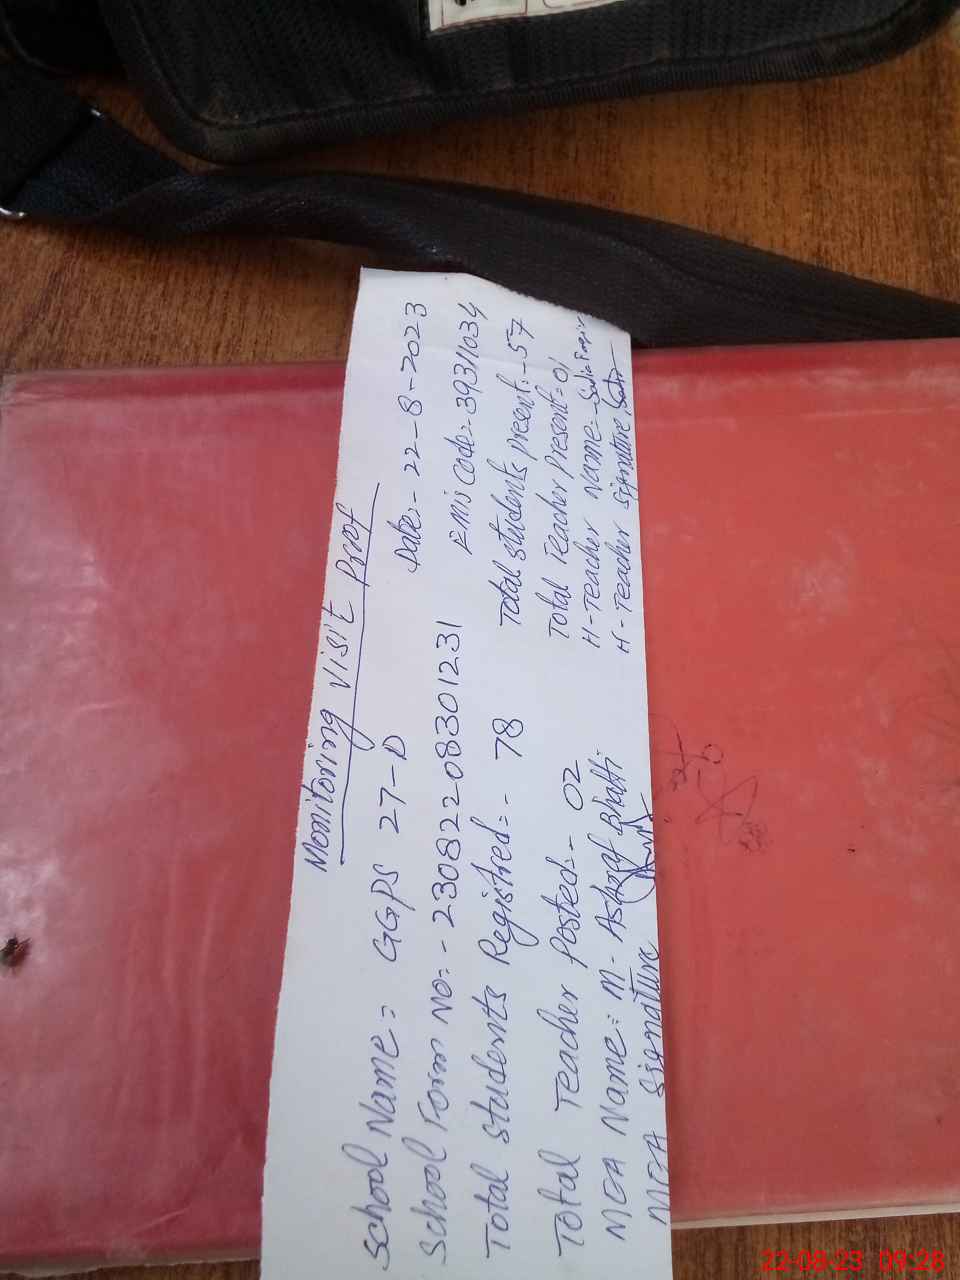 Monitoring Visit Proof
School Name = GGPS 27-D
Date:- 22-8-2023
School Form No:- 23082208301231
Emis Code:- 39311034
Total Students Registred:- 78
Total students present:- 57
Total Teacher Posted:- 02
Total Teacher present:- 01
MEA Name:- M. Ashraf Bhatti
H-Teacher Name:- Sadia
MEA Signature
H-Teacher Signature
22-08-23 09:28